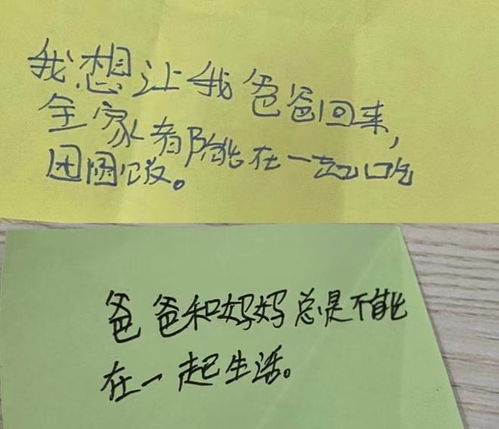 我想让我爸爸回来,
全家都能在一起吃
团圆饭。
爸爸和妈妈总是不能
在一起生活。